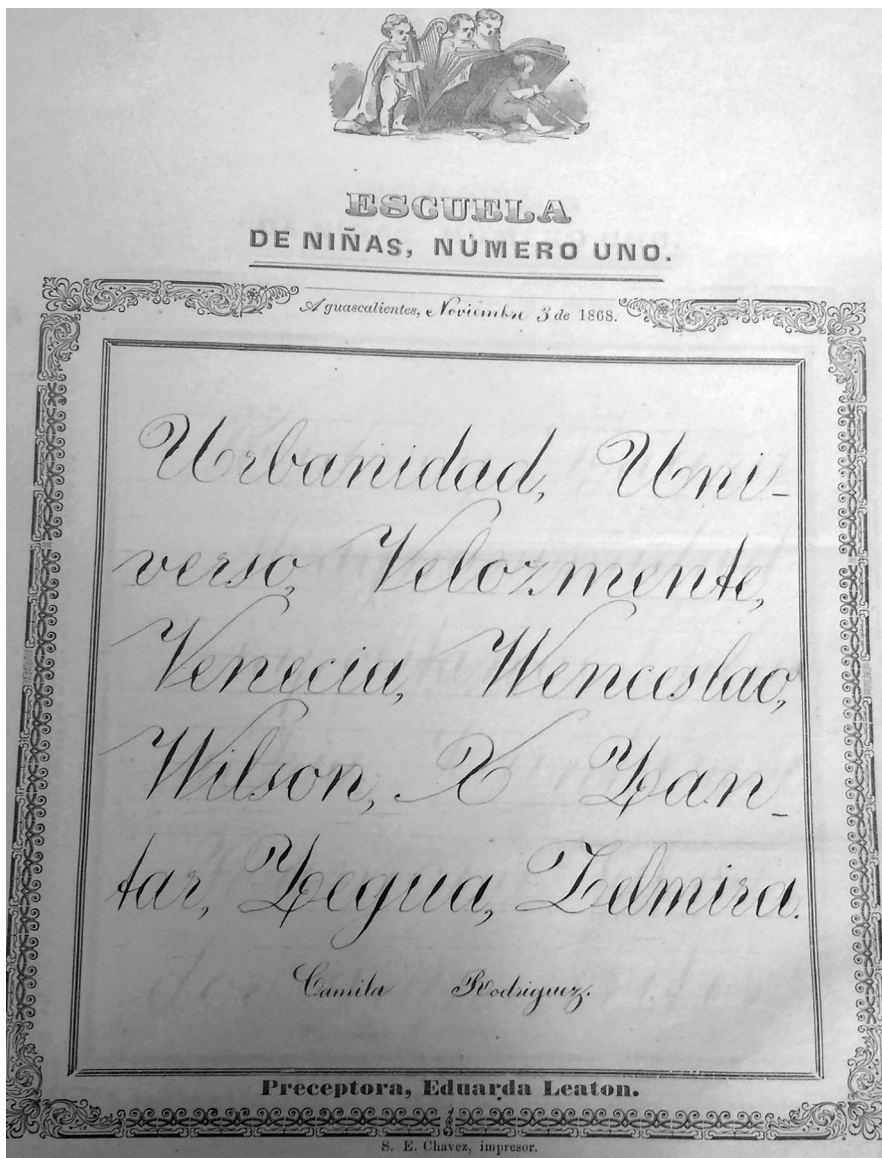 ESCUELA
DE NIÑAS, NÚMERO UNO.
Aguascalientes, Noviembre 3 de 1868.
Urbanidad, Uni-
verso, Velozmente,
Venecia, Wenceslao,
Wilson, X Yan-
tar, Yegua, Zelmira.
Camila Rodriguez.
Preceptora, Eduarda Leaton.
S. E. Chavez, impresor.